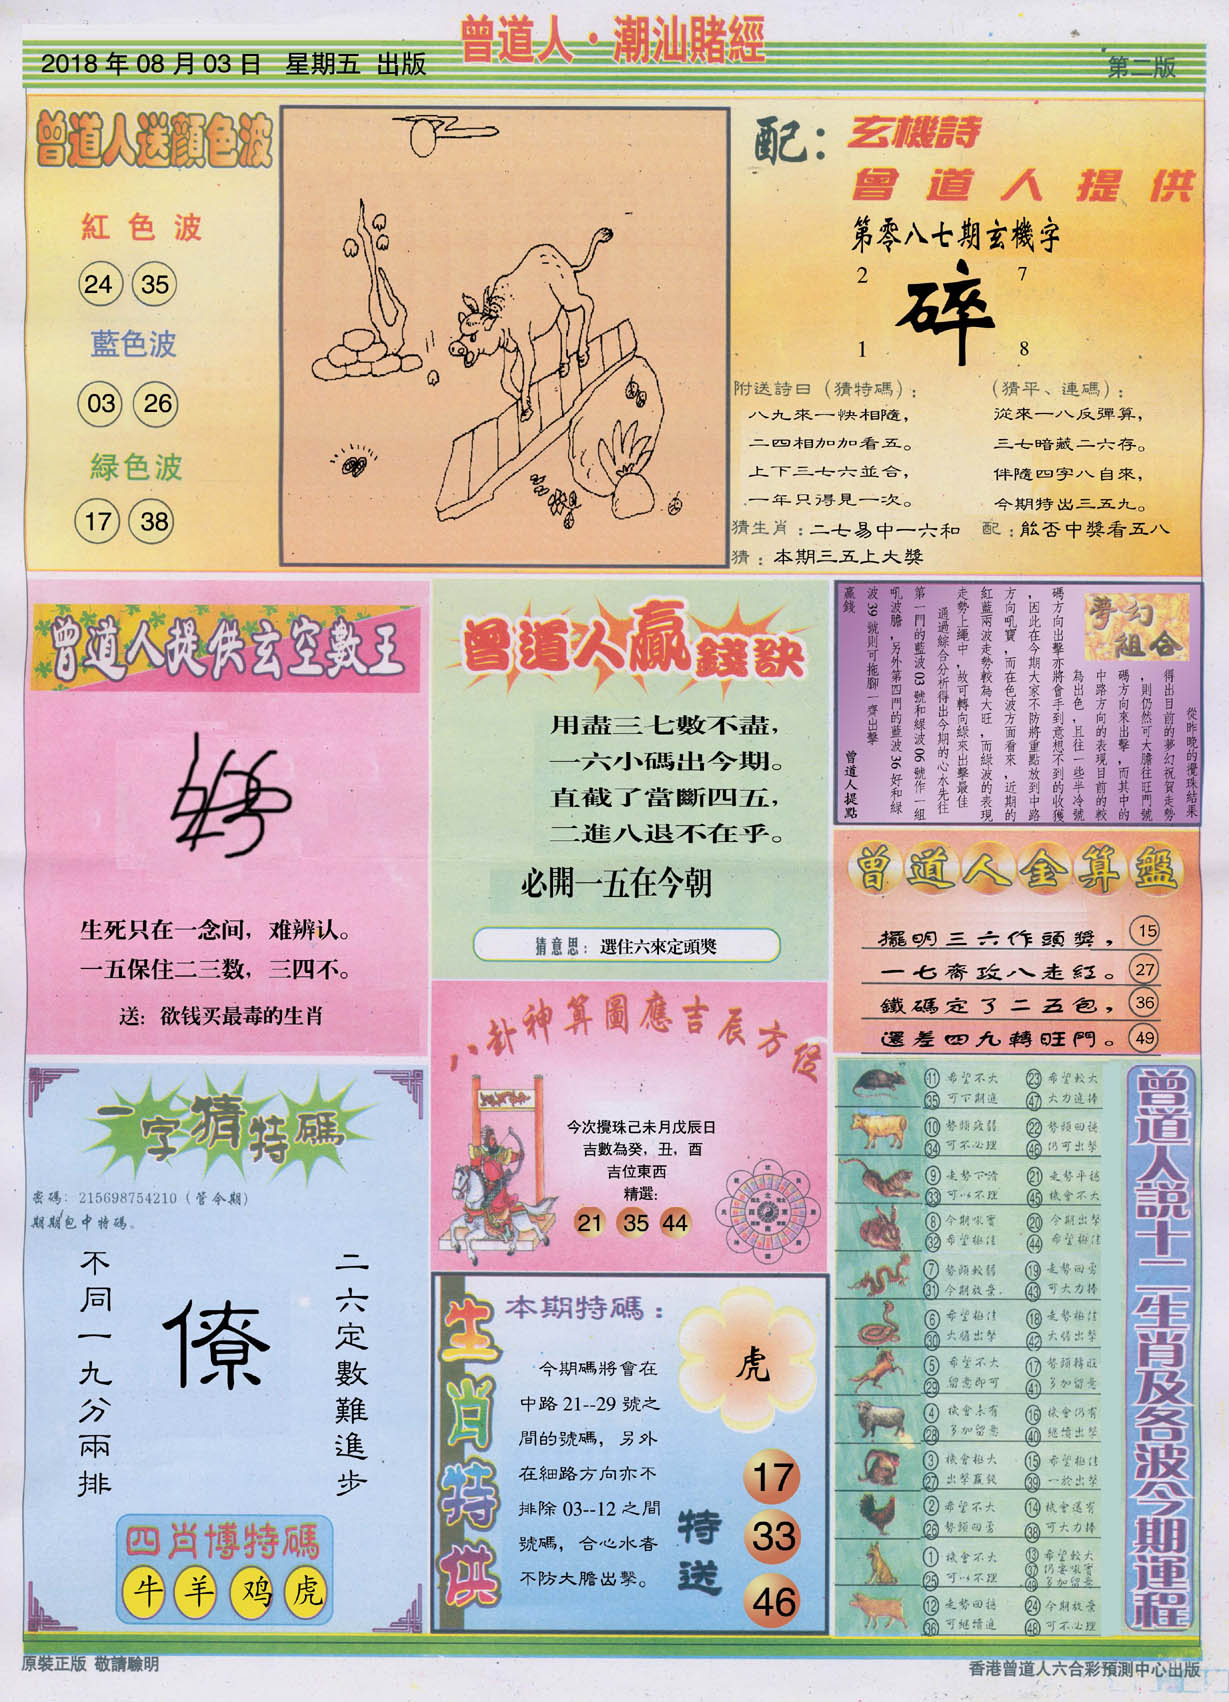 曾道人·潮汕賭經
2018 年 08 月 03 日 星期五 出版
第二版
曾道人送顏色波
紅色波
24 35
藍色波
03 26
緑色波
17 38
配：玄機詩
曾道人提供
第零八七期玄機字
2 7
碎
1 8
附送詩曰（猜特碼）：
八九來一快相隨，
二四相加加看五。
上下三七六並合，
一年只得見一次。
（猜平、連碼）：
從來一八反彈算，
三七暗藏二六存。
伴隨四字八自來，
今期特出三五九。
猜生肖：二七易中一六和
配：能否中獎看五八
猜：本期三五上大獎
曾道人提供玄空數王
生死只在一念间，难辨认。
一五保住二三数，三四不。
送：欲钱买最毒的生肖
曾道人贏錢訣
用盡三七數不盡，
一六小碼出今期。
直截了當斷四五，
二進八退不在乎。
必開一五在今朝
猜意思：選住六來定頭獎
夢幻組合
從昨晚的攪珠結果
得出目前的夢幻祝賀走勢
，則仍然可大膽往旺門號
碼方向來出擊，而其中的
中路方向的表現目前的較
為出色，且往一些半冷號
碼方向出擊亦將會手到意想不到的收獲
，因此在今期大家不防將重點放到中路
方向吼寶，而在色波方面看來，近期的
紅藍兩波走勢較為大旺，而綠波的表現
走勢上繩中，故可轉向綠來出擊最佳
通過綜合分析得出今期的心水先往
第一門的藍波 03 號和綠波 06 號作一組
吼波膽，另外第四門的藍波 36 好和綠
波 39 號則可拖腳一齊出擊
贏錢
曾道人提點
曾道人金算盤
擺明三六作頭獎， 15
一七齊攻八走紅。 27
鐵碼定了二五包， 36
還差四九轉旺門。 49
八卦神算圖應吉辰方位
今次攪珠己未月戊辰日
吉數為癸，丑，酉
吉位東西
精選：
21 35 44
一字猜特碼
密碼：215698754210（管今期）
期期包中特碼。
二六定數難進步
僚
不同一九分兩排
四肖博特碼
牛 羊 鸡 虎
生肖特供
本期特碼：
今期碼將會在
中路 21--29 號之
間的號碼，另外
在細路方向亦不
排除 03--12 之間
號碼，合心水者
不防大膽出擊。
虎
特送
17
33
46
曾道人説十二生肖及各波今期運程
11 希望不大 23 希望較大
35 可下期進 47 大力進捧
10 勢頭疲弱 22 勢頭回穩
34 可不必理 46 仍可出擊
9 走勢下滑 21 走勢平穩
33 可以不理 45 機會不大
8 今期吼實 20 今期出擊
32 希望極佳 44 希望極佳
7 勢頭較弱 19 走勢回勇
31 今期放棄 43 可大力捧
6 希望極佳 18 走勢極佳
30 大膽出擊 42 大膽出擊
5 希望不大 17 勢頭轉旺
29 留意即可 41 多加留意
4 機會未有 16 機會仍有
28 多加留意 40 繼續出擊
3 機會極大 15 希望極佳
27 出擊贏錢 39 一於出擊
2 希望不大 14 機會還有
26 勢頭回勇 38 可大力捧
1 機會不大 13 希望較大
25 可以不理 37 仍要吼實
49 多加留意
12 走勢回穩 24 今期放棄
36 可繼續進 48 可不必理
原裝正版 敬請驗明
香港曾道人六合彩預測中心出版